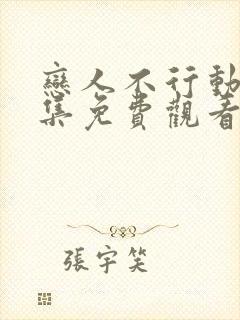 戀人不行動
集免費觀看
張宇笑